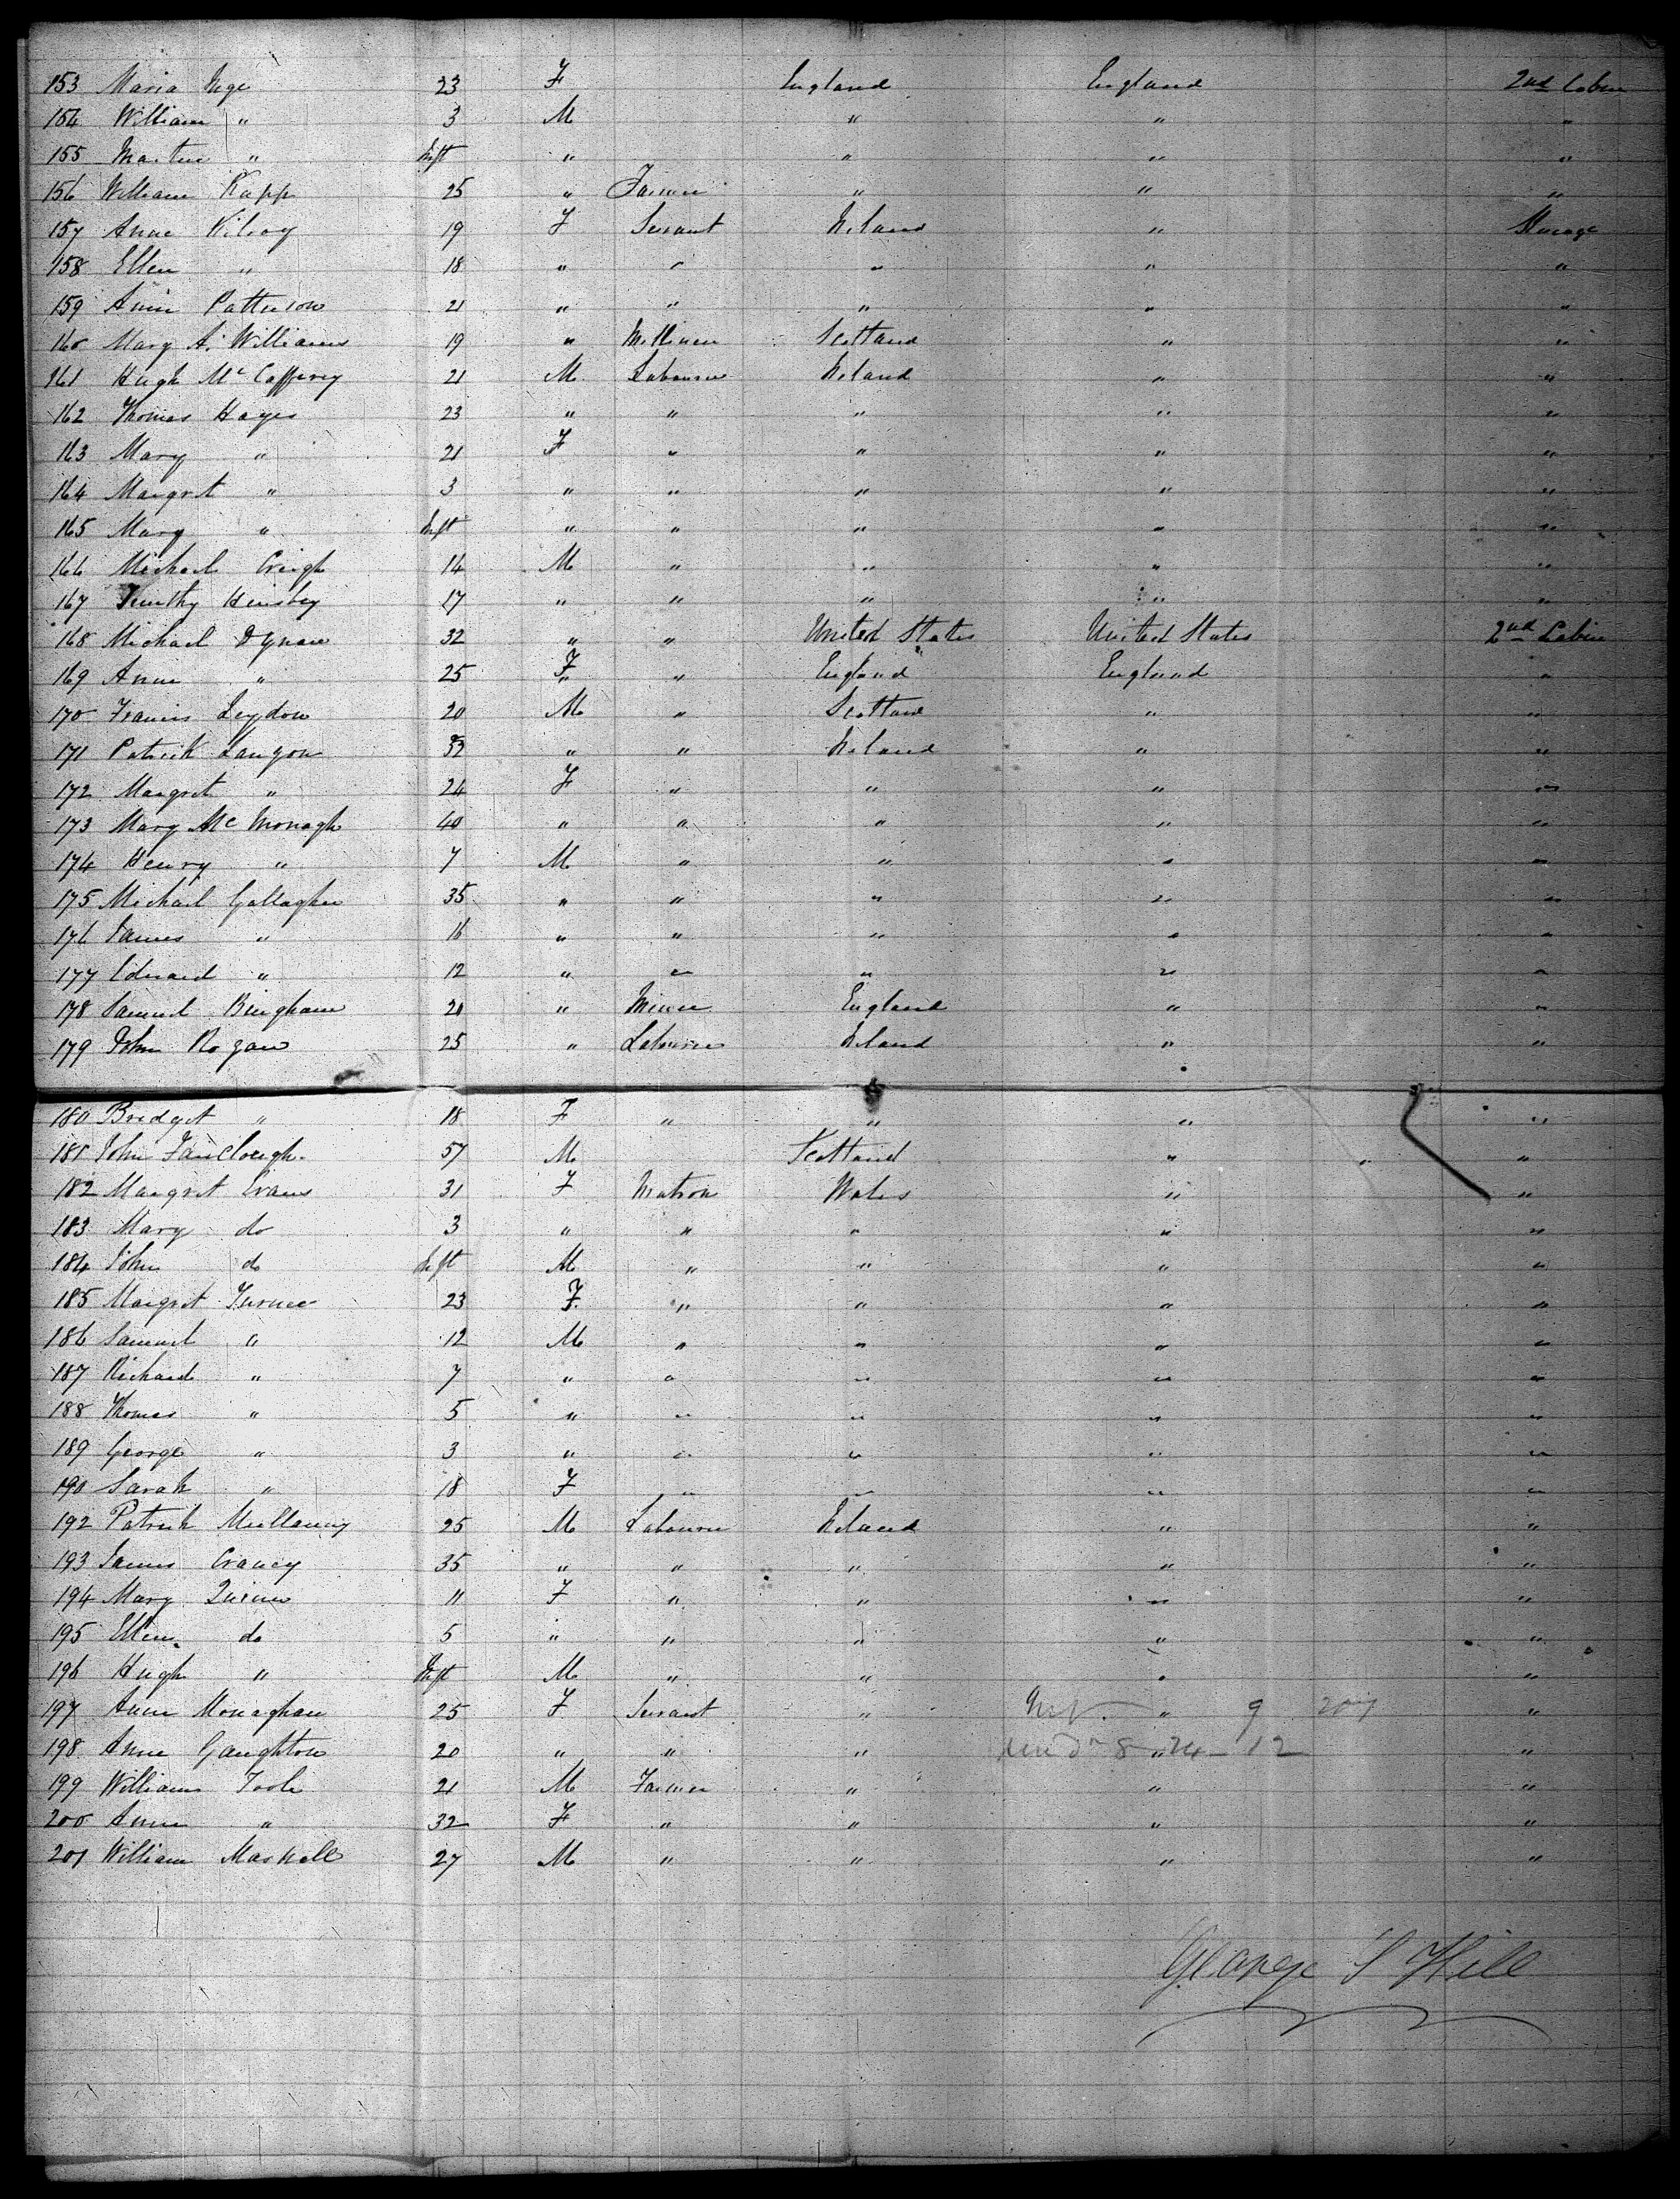 153 Maria Inge 23 F England England 2nd Cabin
154 William " 3 M " " "
155 Martin " Inft " " " "
156 William Rapp 25 " Farmer " " "
157 Anne Kilroy 19 F Servant Ireland " Steerage
158 Ellen " 18 " " " " "
159 Annie Patterson 21 " " " " "
160 Mary A. Williams 19 " Milliner Scotland " "
161 Hugh Mc Cafferey 21 M Labourer Ireland " "
162 Thomas Hayes 23 " " " " "
163 Mary " 21 F " " " "
164 Margrt " 3 " " " " "
165 Mary " Inft " " " " "
166 Michael Creigh 14 M " " " "
167 Timothy 17 " " " " "
168 Michael Dynan 32 " " United States United States 2nd Cabin
169 Annie " 25 F " England England "
170 Francis Leydon 20 M " Scotland " "
171 Patrick Langon " " Ireland " "
172 Margret " 24 F " " " "
173 Mary Mc Monagh 40 " " " " "
174 Henry " 7 M " " " "
175 Michael Gallagher 35 " " " " "
176 James " 16 " " " " "
177 Edward " 12 " " " " "
178 Samuel Bingham 20 " Miner England " "
179 John Rogan 25 " Labourer Ireland " "
180 Bridget " 18 F " " " "
181 John Fairclough 57 M Scotland " " "
182 Margret Evans 31 F Matron Wales " "
183 Mary do 3 " " " " "
184 John do Inft M " " " "
185 Margret Turner 23 F " " " "
186 Samuel " 12 M " " " "
187 Richard " 7 " " " " "
188 Thomas " 5 " " " " "
189 George " 3 " " " " "
190 Sarah " 18 F " " " "
192 Patrick Mullaney 25 M Labourer Ireland " "
193 James Craney 35 " " " " "
194 Mary Quinn 11 F " " " "
195 Ellen do 5 " " " " "
196 Hugh " Inft M " " " "
197 Anne Monaghan 25 F Servant " " 9 "
198 Anne Gaughton 20 " " " 8 " 24 - 12 "
199 William Toole 21 M Farmer " " "
200 Anne " 32 F " " " "
201 William Maskell 27 M " " " "
George S Hill